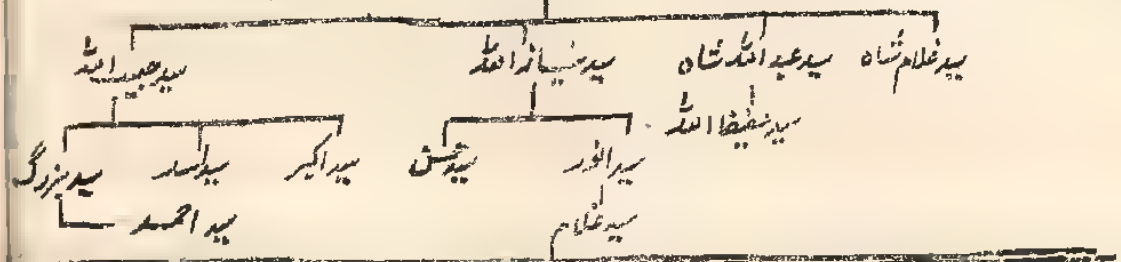 سید غلام شاہ سید عبداللہ شاہ سید نیاز اللہ سید حبیب اللہ
سید حفیظ اللہ
سید انور سید حسن سید اکبر سید اسد سید بزرگ
سید غلام سید احمد